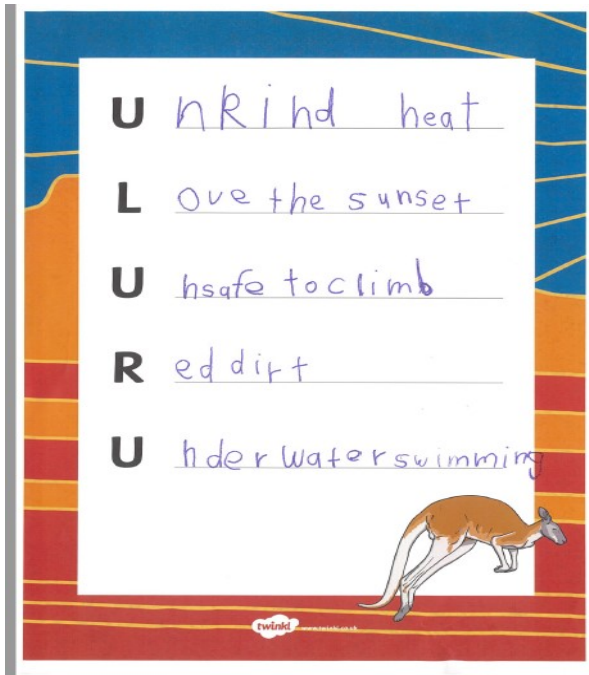 Unkind heat
Love the sunset
Unsafe to climb
Red dirt
Underwater swimming
twinkl www.twinkl.co.uk